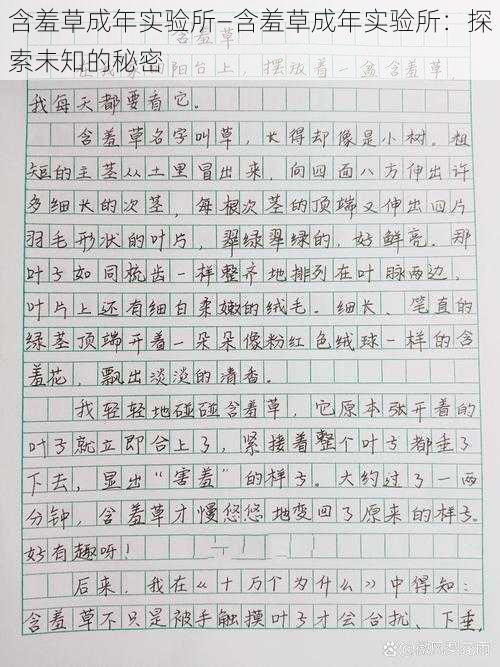 含羞草成年实验所—含羞草成年实验所：探
索未知的秘密
含羞草
阳台上，摆放着一盆含羞草，
我每天都要看它。
含羞草名字叫草，长得却像是小树。粗
短的主茎从土里冒出来，向四面八方伸出许
多细长的次茎，每根次茎的顶端又伸出四片
羽毛形状的叶片，翠绿翠绿的，好鲜亮。那
叶子如同梳齿一样整齐地排列在叶脉两边，
叶片上还有细白柔嫩的绒毛。细长、笔直的
绿茎顶端开着一朵朵像粉红色绒球一样的含
羞花，飘出淡淡的清香。
我轻轻地碰碰含羞草，它原本张开着的
叶子就立即合上了，紧接着整个叶子都垂了
下去，显出“害羞”的样子。大约过了一两
分钟，含羞草才慢悠悠地变回了原来的样子。
好有趣呀！
后来，我在《十万个为什么》中得知：
含羞草不只是被手触摸叶子才会合拢、下垂，